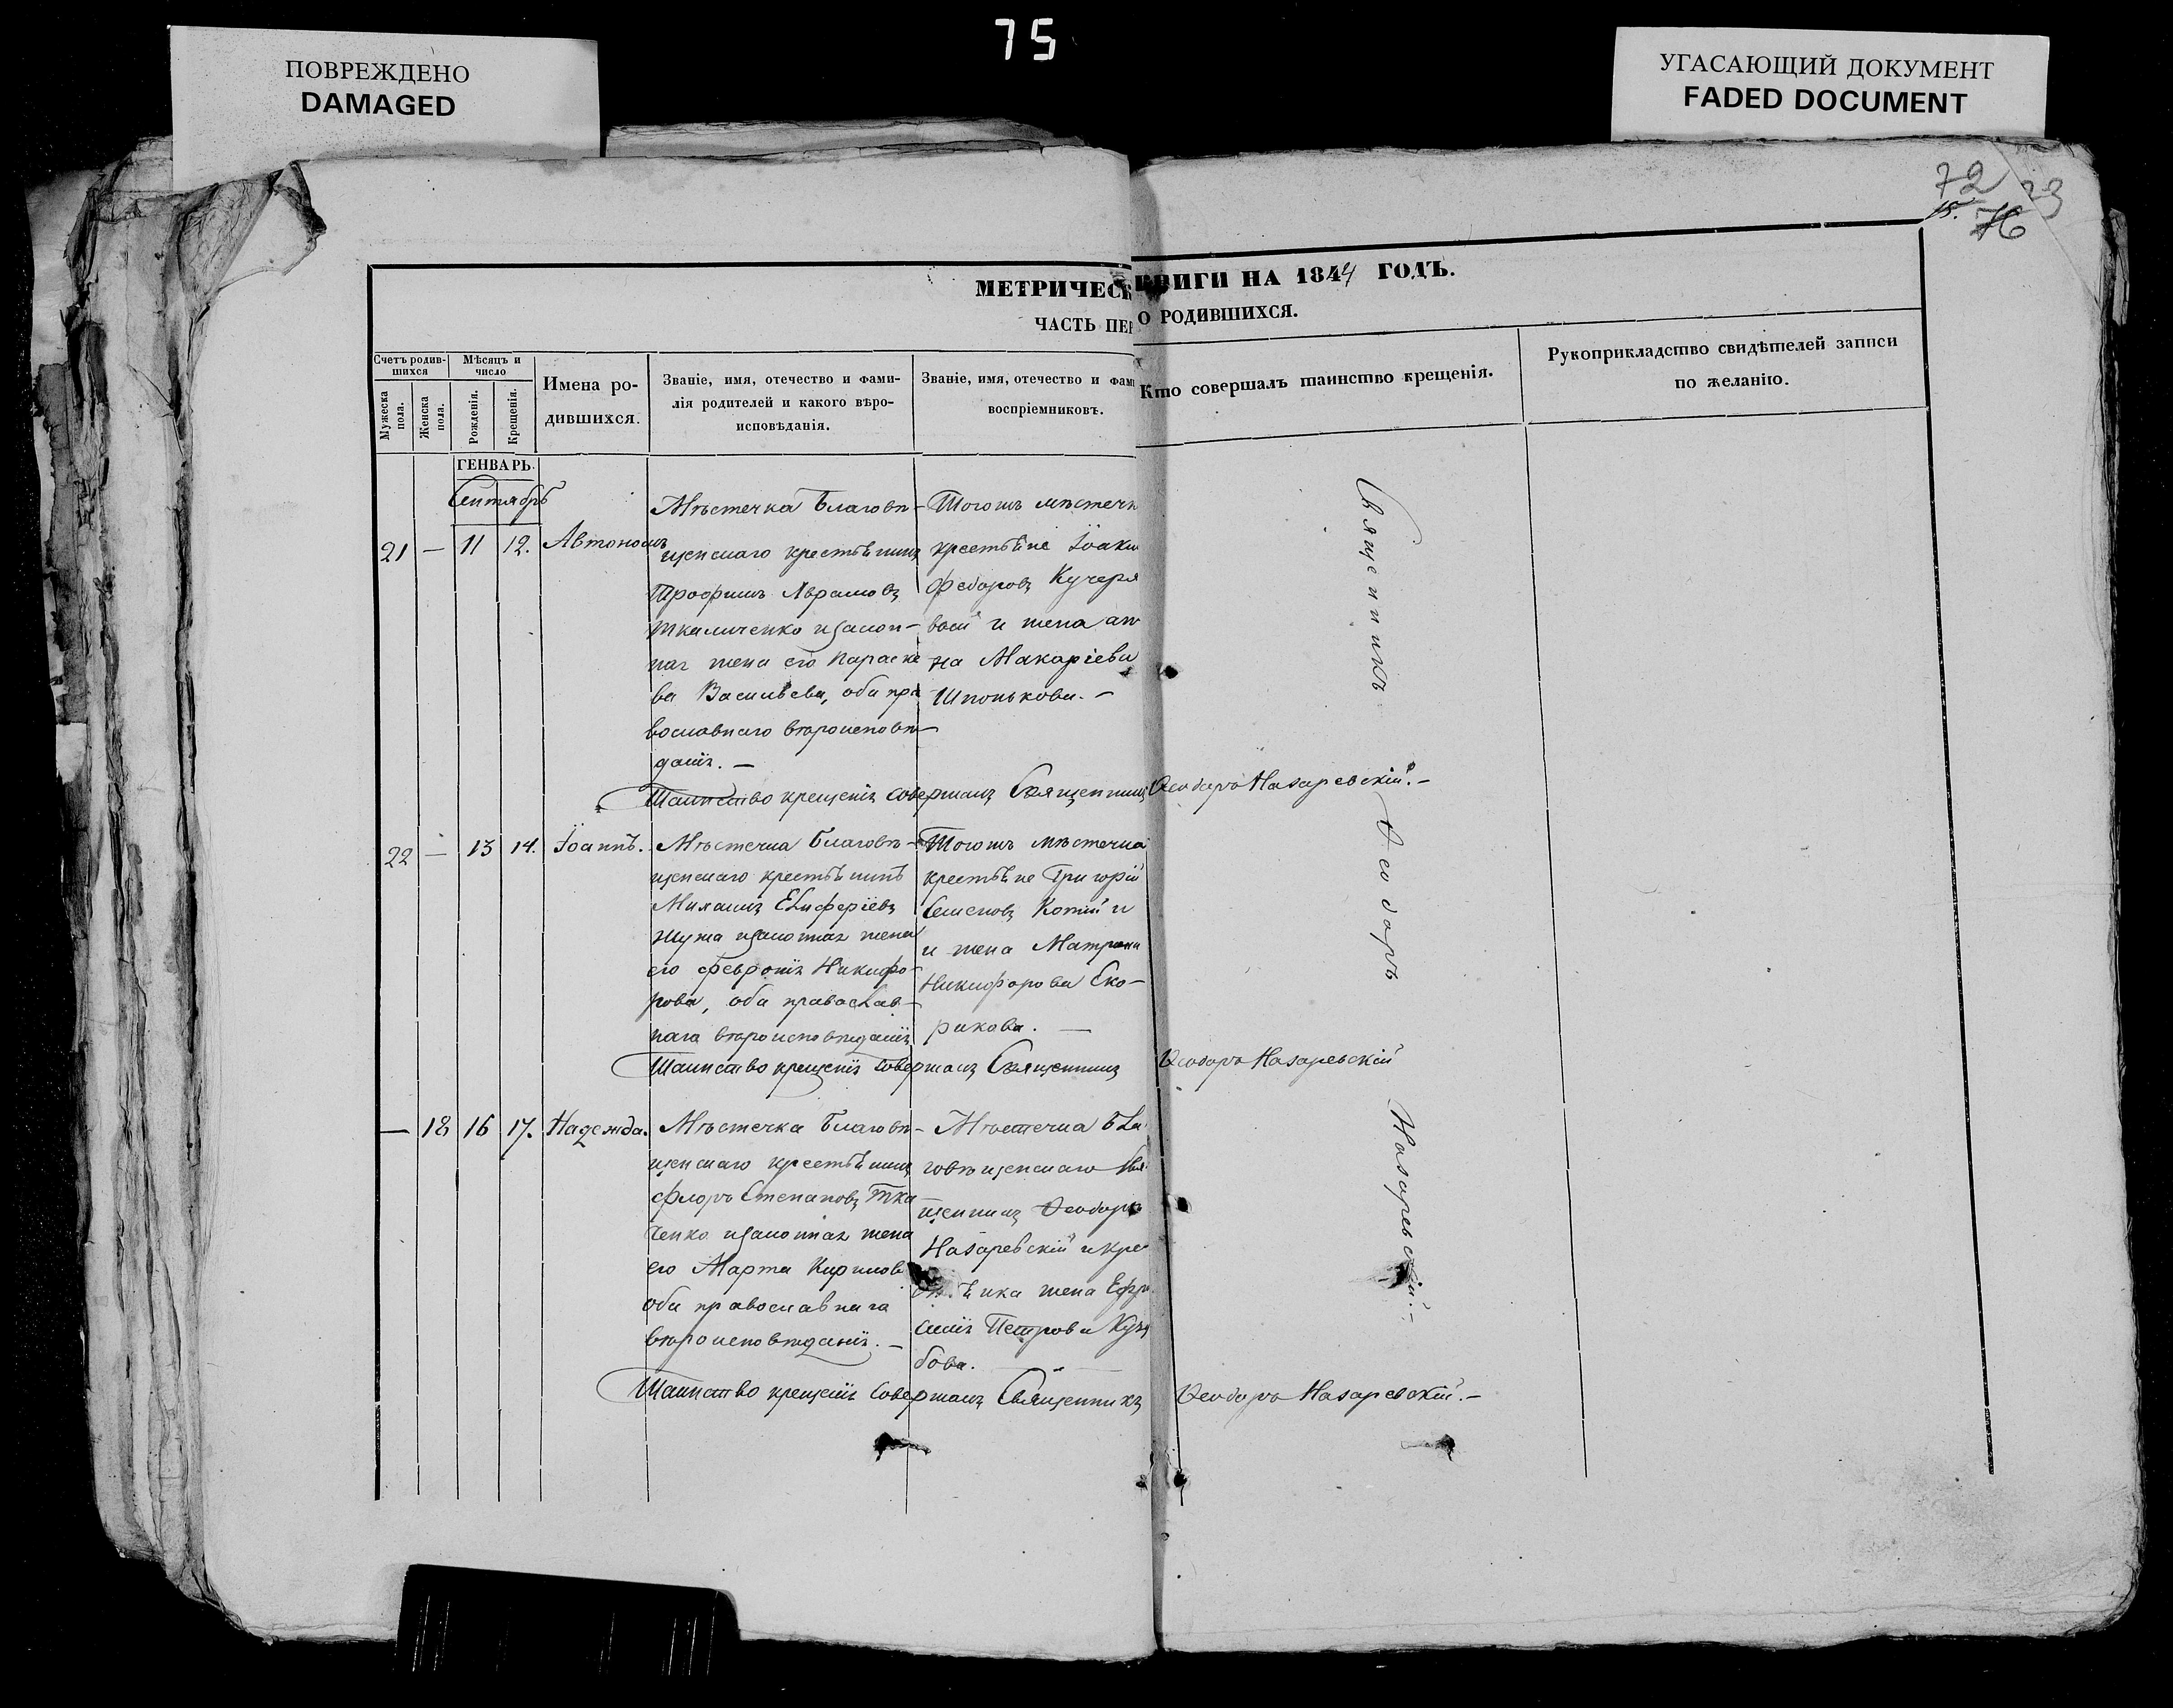 75
ПОВРЕЖДЕНО
DAMAGED
УГАСАЮЩИЙ ДОКУМЕНТ
FADED DOCUMENT
72
15. 76
МЕТРИЧЕСК
КНИГИ НА 1844 ГОДЪ.
ЧАСТЬ ПЕР
О РОДИВШИХСЯ.
Счетъ родив-
шихся
Мужеска
пола.
Женска
пола.
Мѣсяцъ и
число
Рожденія.
Крещенія.
Имена ро-
дившихся.
Званіе, имя, отечество и фами-
лія родителей и какого вѣро-
исповѣданія.
Званіе, имя, отечество и фам
воспріемниковъ.
Кто совершалъ таинство крещенія.
Рукоприкладство свидѣтелей записи
по желанію.
ГЕНВАРЬ.
Сентябрь
21 — 11 12. Автономъ
Мѣстечка Благовѣ-
щенскаго крестьянинъ
Трофимъ Аврамовъ
Ткаличенко изакон-
ная жена его Параске
ва Васильева, оба пра
вославнаго вѣроисповѣ-
данія. —
Тогожъ мѣстечк
крестьяне Іоаки
Федоровъ Кучеря
вой и жена ан
на Макаріева
Шпонькова. —
Таинство крещенія совершалъ Священникъ Ѳеодоръ Назаревскій. —
22 — 13 14. Іоаннъ.
Мѣстечка Благовѣ-
щенскаго крестьянинъ
Михаилъ Елиферіевъ
Жужа изаконная жена
его Февронія Никифо-
рова, оба православ-
наго вѣроисповѣданія
Тогожъ мѣстечка
крестьяне Григорій
Семеновъ Копій и
и жена Матрона
Никифорова Ско-
рикова. —
Таинство крещенія совершалъ Священникъ Ѳеодоръ Назаревскій
— 18 16 17. Надежда.
Мѣстечка Благовѣ-
щенскаго крестьянинъ
Флоръ Степановъ Тка
ченко изаконная жена
его Марта Кирилов
оба православнаго
вѣроисповѣданія. —
Мѣстечка Бла
говѣщенскаго Свя
щенникъ Ѳеодоръ
Назаревскій и кре
жена
Петрова
бова.
Таинство крещенія совершалъ Священникъ Ѳеодоръ Назаревскій. —
Священникъ Ѳеодоръ Назаревскій. —